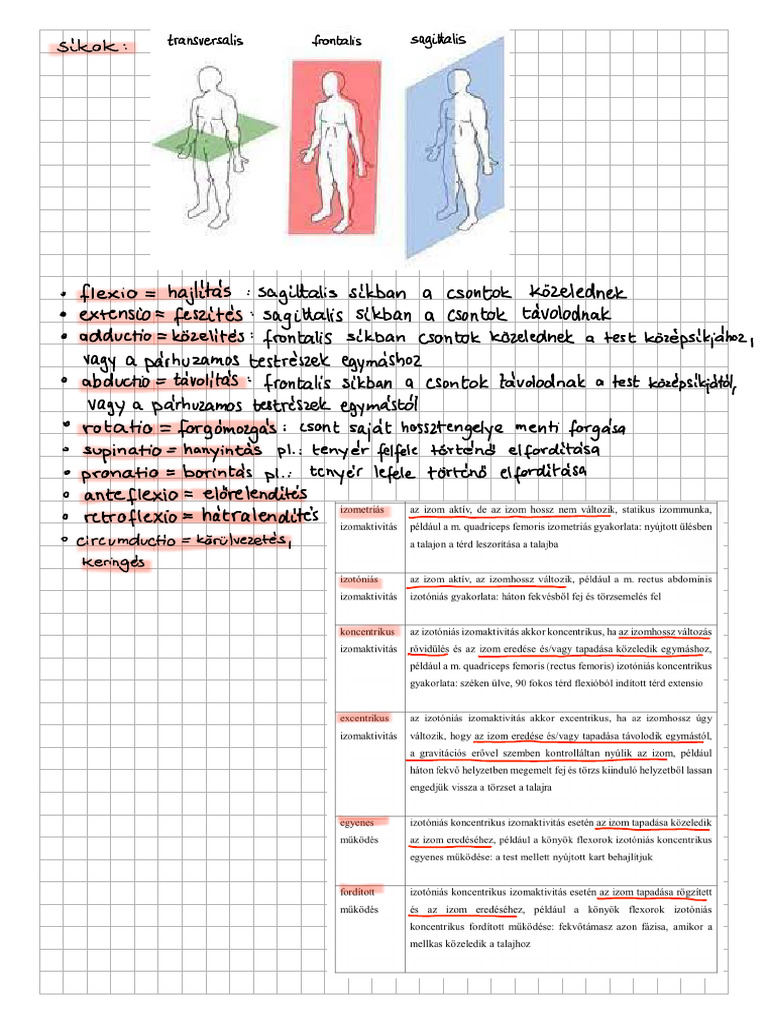 síkok:
transversalis
frontalis
sagittalis
• flexio = hajlítás : sagittalis síkban a csontok közelednek
• extensio = feszítés : sagittalis síkban a csontok távolodnak
• adductio = közelítés : frontalis síkban csontok közelednek a test középsíkjához,
vagy a párhuzamos testrészek egymáshoz
• abductio = távolítás : frontalis síkban a csontok távolodnak a test középsíkjától,
vagy a párhuzamos testrészek egymástól
• rotatio = forgómozgás : csont saját hossztengelye menti forgása
• supinatio = hanyintás pl.: tenyér felfele történő elfordítása
• pronatio = borintás pl.: tenyér lefele történő elfordítása
• anteflexio = előrelendítés
• retroflexio = hátralendítés
• circumductio = körülvezetés,
keringés
izometriás
izomaktivitás
az izom aktív, de az izom hossz nem változik, statikus izommunka,
például a m. quadriceps femoris izometriás gyakorlata: nyújtott ülésben
a talajon a térd leszorítása a talajba
izotóniás
izomaktivitás
az izom aktív, az izomhossz változik, például a m. rectus abdominis
izotóniás gyakorlata: háton fekvésből fej és törzsemelés fel
koncentrikus
izomaktivitás
az izotóniás izomaktivitás akkor koncentrikus, ha az izomhossz változás
rövidülés és az izom eredése és/vagy tapadása közeledik egymáshoz,
például a m. quadriceps femoris (rectus femoris) izotóniás koncentrikus
gyakorlata: széken ülve, 90 fokos térd flexióból indított térd extensio
excentrikus
izomaktivitás
az izotóniás izomaktivitás akkor excentrikus, ha az izomhossz úgy
változik, hogy az izom eredése és/vagy tapadása távolodik egymástól,
a gravitációs erővel szemben kontrolláltan nyúlik az izom, például
háton fekvő helyzetben megemelt fej és törzs kiinduló helyzetből lassan
engedjük vissza a törzset a talajra
egyenes
működés
izotóniás koncentrikus izomaktivitás esetén az izom tapadása közeledik
az izom eredéséhez, például a könyök flexorok izotóniás koncentrikus
egyenes működése: a test mellett nyújtott kart behajlítjuk
fordított
működés
izotóniás koncentrikus izomaktivitás esetén az izom tapadása rögzített
és az izom eredéséhez, például a könyök flexorok izotóniás
koncentrikus fordított működése: fekvőtámasz azon fázisa, amikor a
mellkas közeledik a talajhoz